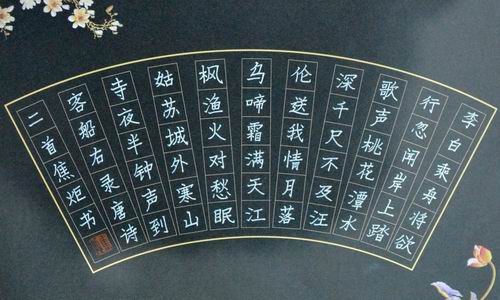 李白乘舟将欲
行忽闻岸上踏
歌声桃花潭水
深千尺不及汪
伦送我情月落
乌啼霜满天江
枫渔火对愁眠
姑苏城外寒山
寺夜半钟声到
客船右录唐诗
二首焦炬书